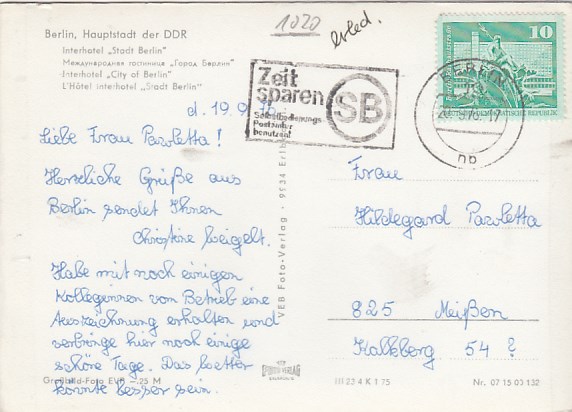 1020
erled.
Berlin, Hauptstadt der DDR
Interhotel „Stadt Berlin"
Международная гостиница „Город Берлин"
Interhotel „City of Berlin"
L'Hôtel interhotel „Stadt Berlin"
10
Zeit
sparen
SB
Selbstbedienungs-
Postämter
benutzen!
BERLIN
np
d. 19.9.
Liebe Frau Pawletta!
Herzliche Grüße aus
Berlin sendet Ihnen
Christine Weigelt.
Habe mit noch einigen
Kolleginnen vom Betrieb eine
Auszeichnung erhalten und
verbringe hier noch einige
schöne Tage. Das Wetter
könnte besser sein.
VEB Foto-Verlag · 9134
Frau
Hildegard Pawletta
825 Meißen
Kalkberg 54 ?
Großbild-Foto EVP —,25 M
III 23 4 K 1 75
Nr. 07 15 03 132